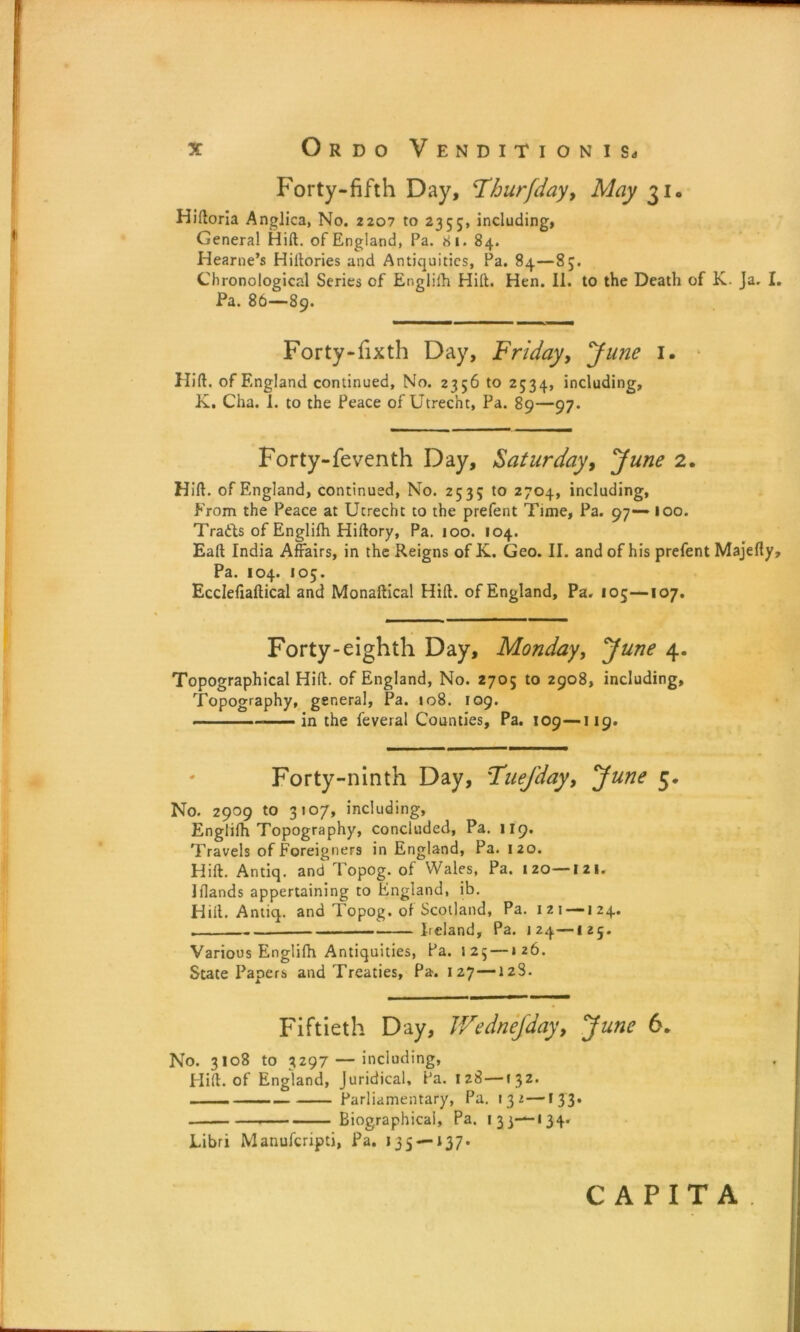 x ORDO VENDITIONIS.
Forty-fifth Day, Thurſday, May 31.
Hiſtoria Anglica, No. 2207 to 2355, including,
General Hiſt. of England, Pa. 81. 84.
Hearne's Hiſtories and Antiquities, Pa. 84—85.
Chronological Series of Engliſh Hiſt. Hen. II. to the Death of K. Ja. I.
Pa. 86—89.
Forty-ſixth Day, Friday, June 1.
Hiſt. of England continued, No. 2356 to 2534, including,
K. Cha. I. to the Peace of Utrecht, Pa. 89—97.
Forty-ſeventh Day, Saturday, June 2.
Hiſt. of England, continued, No. 2535 to 2704, including,
From the Peace at Utrecht to the preſent Time, Pa. 97—100.
Tracts of Engliſh Hiſtory, Pa. 100. 104.
Eaſt India Affairs, in the Reigns of K. Geo. II. and of his preſent Majeſty,
Pa. 104. 105.
Eccleſiaſtical and Monaſtical Hiſt. of England, Pa. 105—107.
Forty-eighth Day, Monday, June 4.
Topographical Hiſt. of England, No. 2705 to 2908, including,
Topography, general, Pa. 108. 109.
—— in the ſeveral Counties, Pa. 109—119.
Forty-ninth Day, Tueſday, June 5.
No. 2909 to 3107, including,
Engliſh Topography, concluded, Pa. 119.
Travels of Foreigners in England, Pa. 120.
Hiſt. Antiq. and Topog. of Wales, Pa. 120—121.
Iſlands appertaining to England, ib.
Hiſt. Antiq. and Topog. of Scotland, Pa. 121—124.
—— —— —— Ireland, Pa. 124—125.
Various Engliſh Antiquities, Pa. 125—126.
State Papers and Treaties, Pa. 127—128.
Fiftieth Day, Wedneſday, June 6.
No. 3108 to 3297 — including,
Hiſt. of England, Juridical, Pa. 128—132.
—— —— Parliamentary, Pa. 132—133.
—— —— Biographical, Pa. 133—134.
Libri Manuſcripti, Pa. 135—137.
CAPITA